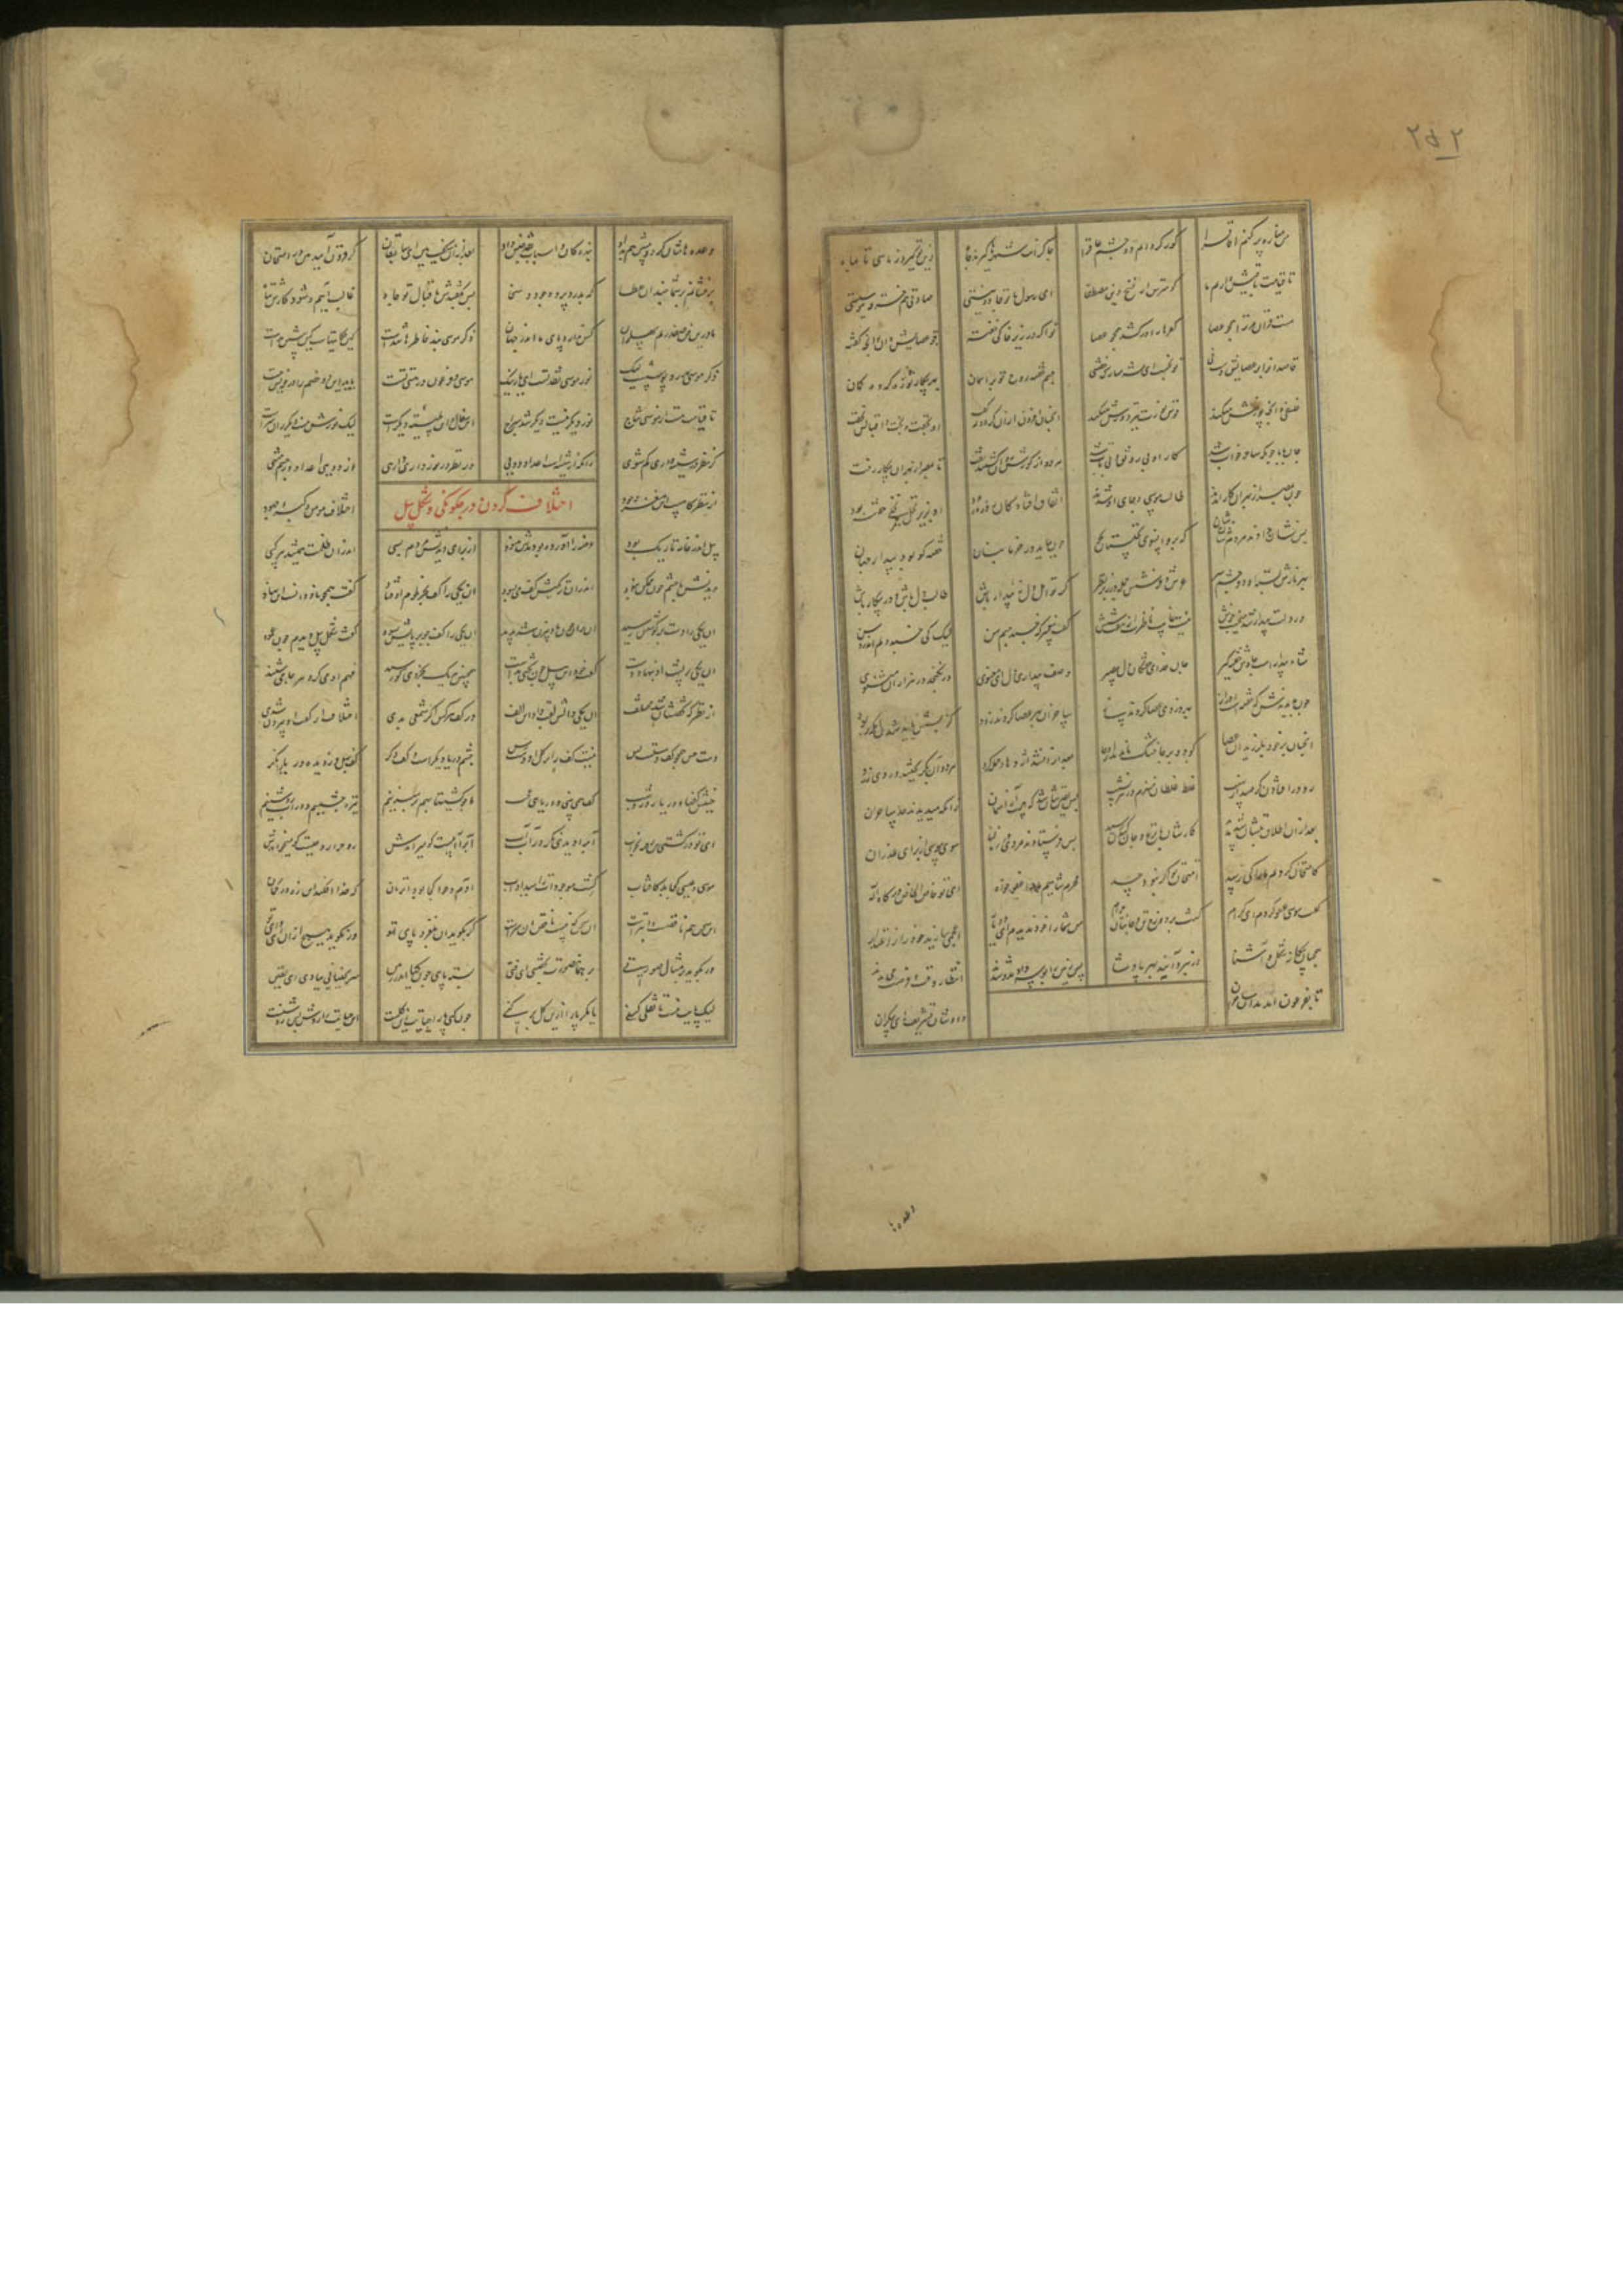 ۲۵۲
من مناره پر کنم آفاق را کور گردانم دو چشم عاق را چاکرانت شهرها گیرند و جاه دین تو گیرد ز ماهی تا به ماه
تا قیامت باقیش داریم ما تو مترس از نسخ دین مصطفا ای رسول ما تو جادو نیستی صادقی هم خرقه موسیستی
هست قرآن مر ترا همچو عصا کفرها را در کشد تو اگر در زیر خاکی خفته چون عصایش دان
قاصدان را بر عصایت دست نی تو بخسب ای شه مبارک خفتنی بر آسمان بهر پیکار تو زه کرده کمان
فلسفی و آنچه پوزش میکند قوس نورت تیر دوزش میکند او بخفت و بخت و اقبالش نخفت
جان بابا چونکه ساحر خواب شد کار او بی رونق و بی تاب شد هر دو از گورش روان گشتند تفت تا بمصر از بهر آن پیکار رفت
چون بمصر از بهر آن کار آمدند طالب موسی و جای او شدند اتفاق افتاد کان روز ورود زیر نخلی خفته بود
پس نشان دادندشان مردم بدو که برو آنسوی نخلستان بجو چون بیامد دید در خرما بنان خفته کو بود بیدار جهان
بهر نازش بسته او دو چشم سر عرش و فرشش جمله در زیر نظر گر تو اهل دل نه بیدار باش طالب دل باش و در پیکار باش
ور دلت بیدار شد میخسب خوش نیست غایب ناظرت از هفت و شش گفت پیغمبر که خسبد چشم من لیک کی خسبد دلم اندر وسن
شاه بیدارست حارس خفته گیر جان فدای خفتگان دل بصیر وصف بیداری دل ای معنوی در نگنجد در هزاران مثنوی
چون بدیدندش که خفتست او دراز بهر دزدی عصا کردند ساز ساحران قصد عصا کردند زود کز پسش باید شدن وانگه ربود
آنچنان بر خود بلرزید آن عصا کان دو بر جا خشک از وجا بعد از آن شد اژدها و حمله کرد هر دوان بگریختند و روی زرد
رو در افتادن گرفتند از نهیب غلط غلطان منهزم در هر نشیب پس یقینشان شد که هست از آسمان زانکه میدیدند حد ساحران
بعد از آن اطلاق و تبشان شد پدید کارشان تا نزع و جان کندن رسید پس فرستادند مردی در زمان سوی موسی از برای عذر آن
کامتحان کردیم و ما را کی رسد امتحان تو اگر نبود حسد مجرم شاهیم ما را عفو خواه ای تو خاص الخاص درگاه اله
گفت موسی عفو کردم ای کرام گشت بر دوزخ تن و جانتان حرام من شما را خود ندیدم ای دو یار اعجمی سازید خود را ز اعتذار
همچنان بیگانه شکل و آشنا در نبرد آیید بهر پادشا پس زمین را بوسه دادند و شدند انتظار وقت و فرصت می بدند
تا بفرعون آمدند آن ساحران دادشان تشریفهای بیکران
وعده
وعده هاشان کرد و پیشین هم بداد بندگان و اسبان و نقد و جنس و زاد بعد از آن میگفت هین ای سابقان گر فزون آیید اندر امتحان
بر فشانم بر شما چندان عطا که بدرد پرده جود و سخا پس بگفتندش باقبال تو شاه غالب آییم و شود کارش تباه
ما درین فن صفدریم و پهلوان کس ندارد پای ما اندر جهان ذکر موسی بند خاطرها شدست کین حکایتهاست که پیشین بدست
ذکر موسی بهر روپوشست لیک نور موسی نقد تست ای یار نیک موسی و فرعون در هستی تست باید این دو خصم را در خویش جست
تا قیامت هست از موسی نتاج نور دیگر نیست دیگر شد سراج این سفال و این پلیته دیگرست لیک نورش نیست دیگر زان سرست
گر نظر در شیشه داری گم شوی زانکه از شیشه است اعداد دوی ور نظر بر نور داری وارهی از دوی و اعداد جسم منتهی
از نظرگاهست ای مغز وجود اختلاف مومن و گبر و جهود
اختلاف کردن در چگونگی و شکل پیل
پیل اندر خانه تاریک بود عرضه را آورده بودندش هنود از برای دیدنش مردم بسی اندر آن ظلمت همیشد هر کسی
دیدنش با چشم چون ممکن نبود اندر آن تاریکیش کف می بسود آن یکی را کف بخرطوم اوفتاد گفت همچون ناودانست این نهاد
آن یکی را دست بر گوشش رسید آن برو چون بادبیزن شد پدید آن یکی را کف چو بر پایش بسود گفت شکل پیل دیدم چون عمود
آن یکی بر پشت او بنهاد دست گفت خود این پیل چون تختی بدست همچنین هر یک بجزوی که رسید فهم آن می کرد هر جا می شنید
از نظرگه گفتشان شد مختلف آن یکی دالش لقب داد این الف در کف هر کس اگر شمعی بدی اختلاف از گفتشان بیرون شدی
چشم حس همچون کف دستست و بس نیست کف را بر کل او دست رس چشم دریا دیگرست و کف دگر کف بهل وز دیده دریا نگر
جنبش کفها ز دریا روز و شب کف همی بینی و دریا نی عجب ما چو کشتیها بهم بر میزنیم تیره چشمیم و در آب روشنیم
ای تو در کشتی تن رفته بخواب آب را دیدی نگر در آب آب آب را آبیست کو میراندش روح را روحیست کو میخواندش
موسی و عیسی کجا بد کافتاب کشت موجودات را میداد آب آدم و حوا کجا بود آن زمان که خدا افکند این زه در کمان
این سخن هم ناقص است و ابترست آن سخن که نیست ناقص آن سرست گر بگوید زان بلغزد پای تو ور نگوید هیچ از آن ای وای تو
ور بگوید در مثال صورتی بر همان صورت بچفسی ای فتی بسته پایی چون گیا اندر زمین سر بجنبانی ببادی بی یقین
لیک پایت نیست تا نقلی کنی یا مگر پا را ازین گل بر کنی چون کنی پا را حیاتت زین گلست این حیاتت را روش بس مشکلست